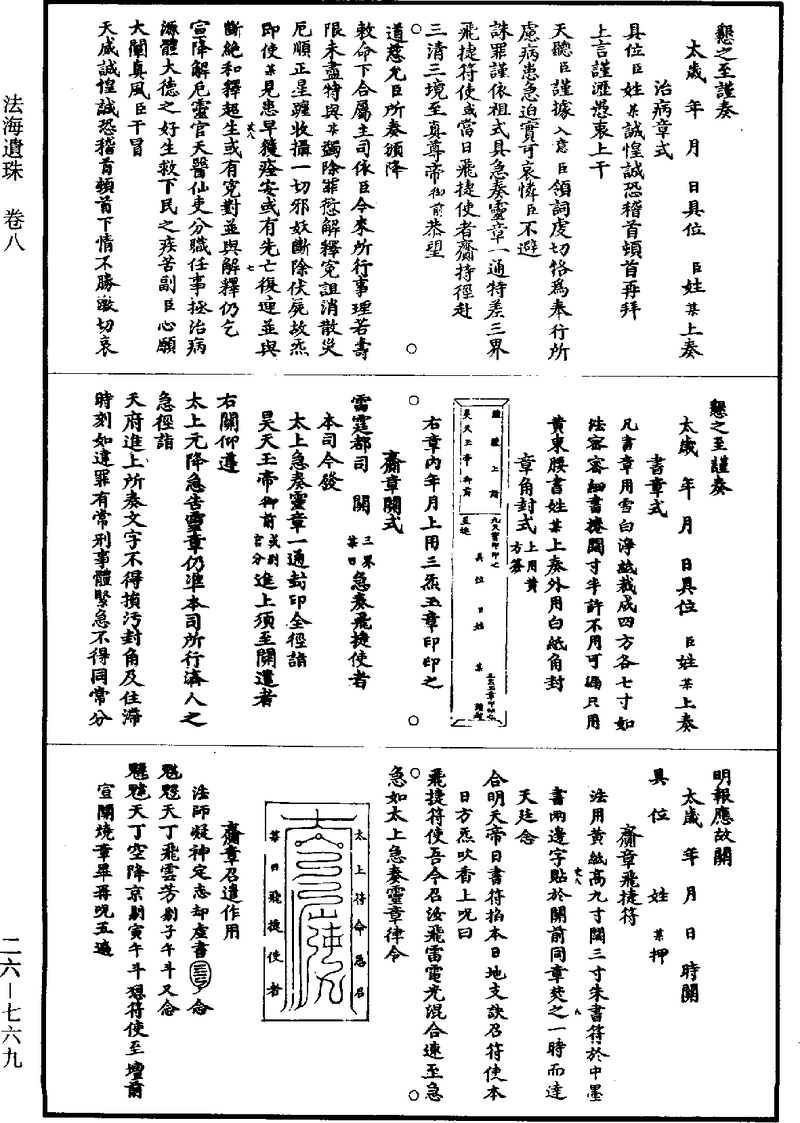 法海遺珠　卷八
懇之至謹奏
太歲　年　月　日具位　臣姓某上奏
治病章式
具位臣姓某誠惶誠恐稽首頓首再拜
上言謹瀝愚衷上干
天聽臣謹據入意臣領詞虔切恪為奉行所
慮病患急迫實可哀憐臣不避
誅罪謹依祖式具急奏靈章一通特差三界
飛捷符使或當日飛捷使者齎持徑赴
三清三境至真尊帝御前恭望
道慈允臣所奏頒降
敕命下合屬主司依臣今來所行事理若壽
限未盡特與某蠲除罪愆解釋冤詛消散災
厄順正星躔收攝一切邪妖斷除伏屍故炁
即使某見患早獲痊安或有先亡復連並與
斷絕和釋超生或有冤對並與解釋仍乞
宣降解厄靈官天醫仙吏分職任事拯治病
源體大德之好生救下民之疾苦副臣心願
大闡真風臣干冒
天威誠惶誠恐稽首頓首下情不勝激切哀
懇之至謹奏
太歲　年　月　日具位　臣姓某上奏
書章式
凡書章用雪白淨紙裁成四方各七寸如
法密密細書摟闊寸半許不用可漏只用
黃束腰書姓某上奏外用白紙角封
章角封式上用黃方簽
謹謹上詣
昊天玉帝御前
具位　臣姓　某
右章內年月上用三炁玉章印印之
齎章關式
雷霆都司　關　三界某日急奏飛捷使者
本司今發
太上急奏靈章一通封印全徑詣
昊天玉帝御前或別宮分進上須至關遣者
右關仰遵
太上元降急告靈章仍準本司所行濟人之
急徑詣
天府進上所奏文字不得損污封角及住滯
時刻如違罪有常刑事體緊急不得同常分
明報應故關
太歲　年　月　日　時關
具　位　　姓　某押
齎章飛捷符
法用黃紙高九寸闊三寸朱書符於中墨
書兩邊字貼於關前同章焚之一時而達
天廷念
合明天帝日書符掐本日地支訣召符使本
日方炁吹香上呪曰
飛捷符使吾今召汝飛雷電光混合速至急
急如太上急奏靈章律令
太上符命急召
某日飛捷使者
齎章召遣作用
法師凝神定志却虛書念
天丁飛雲芳剔子午斗又念
天丁空降京剔寅午斗想符使至壇前
宣關燒章畢再呪五遍
二六—七六九